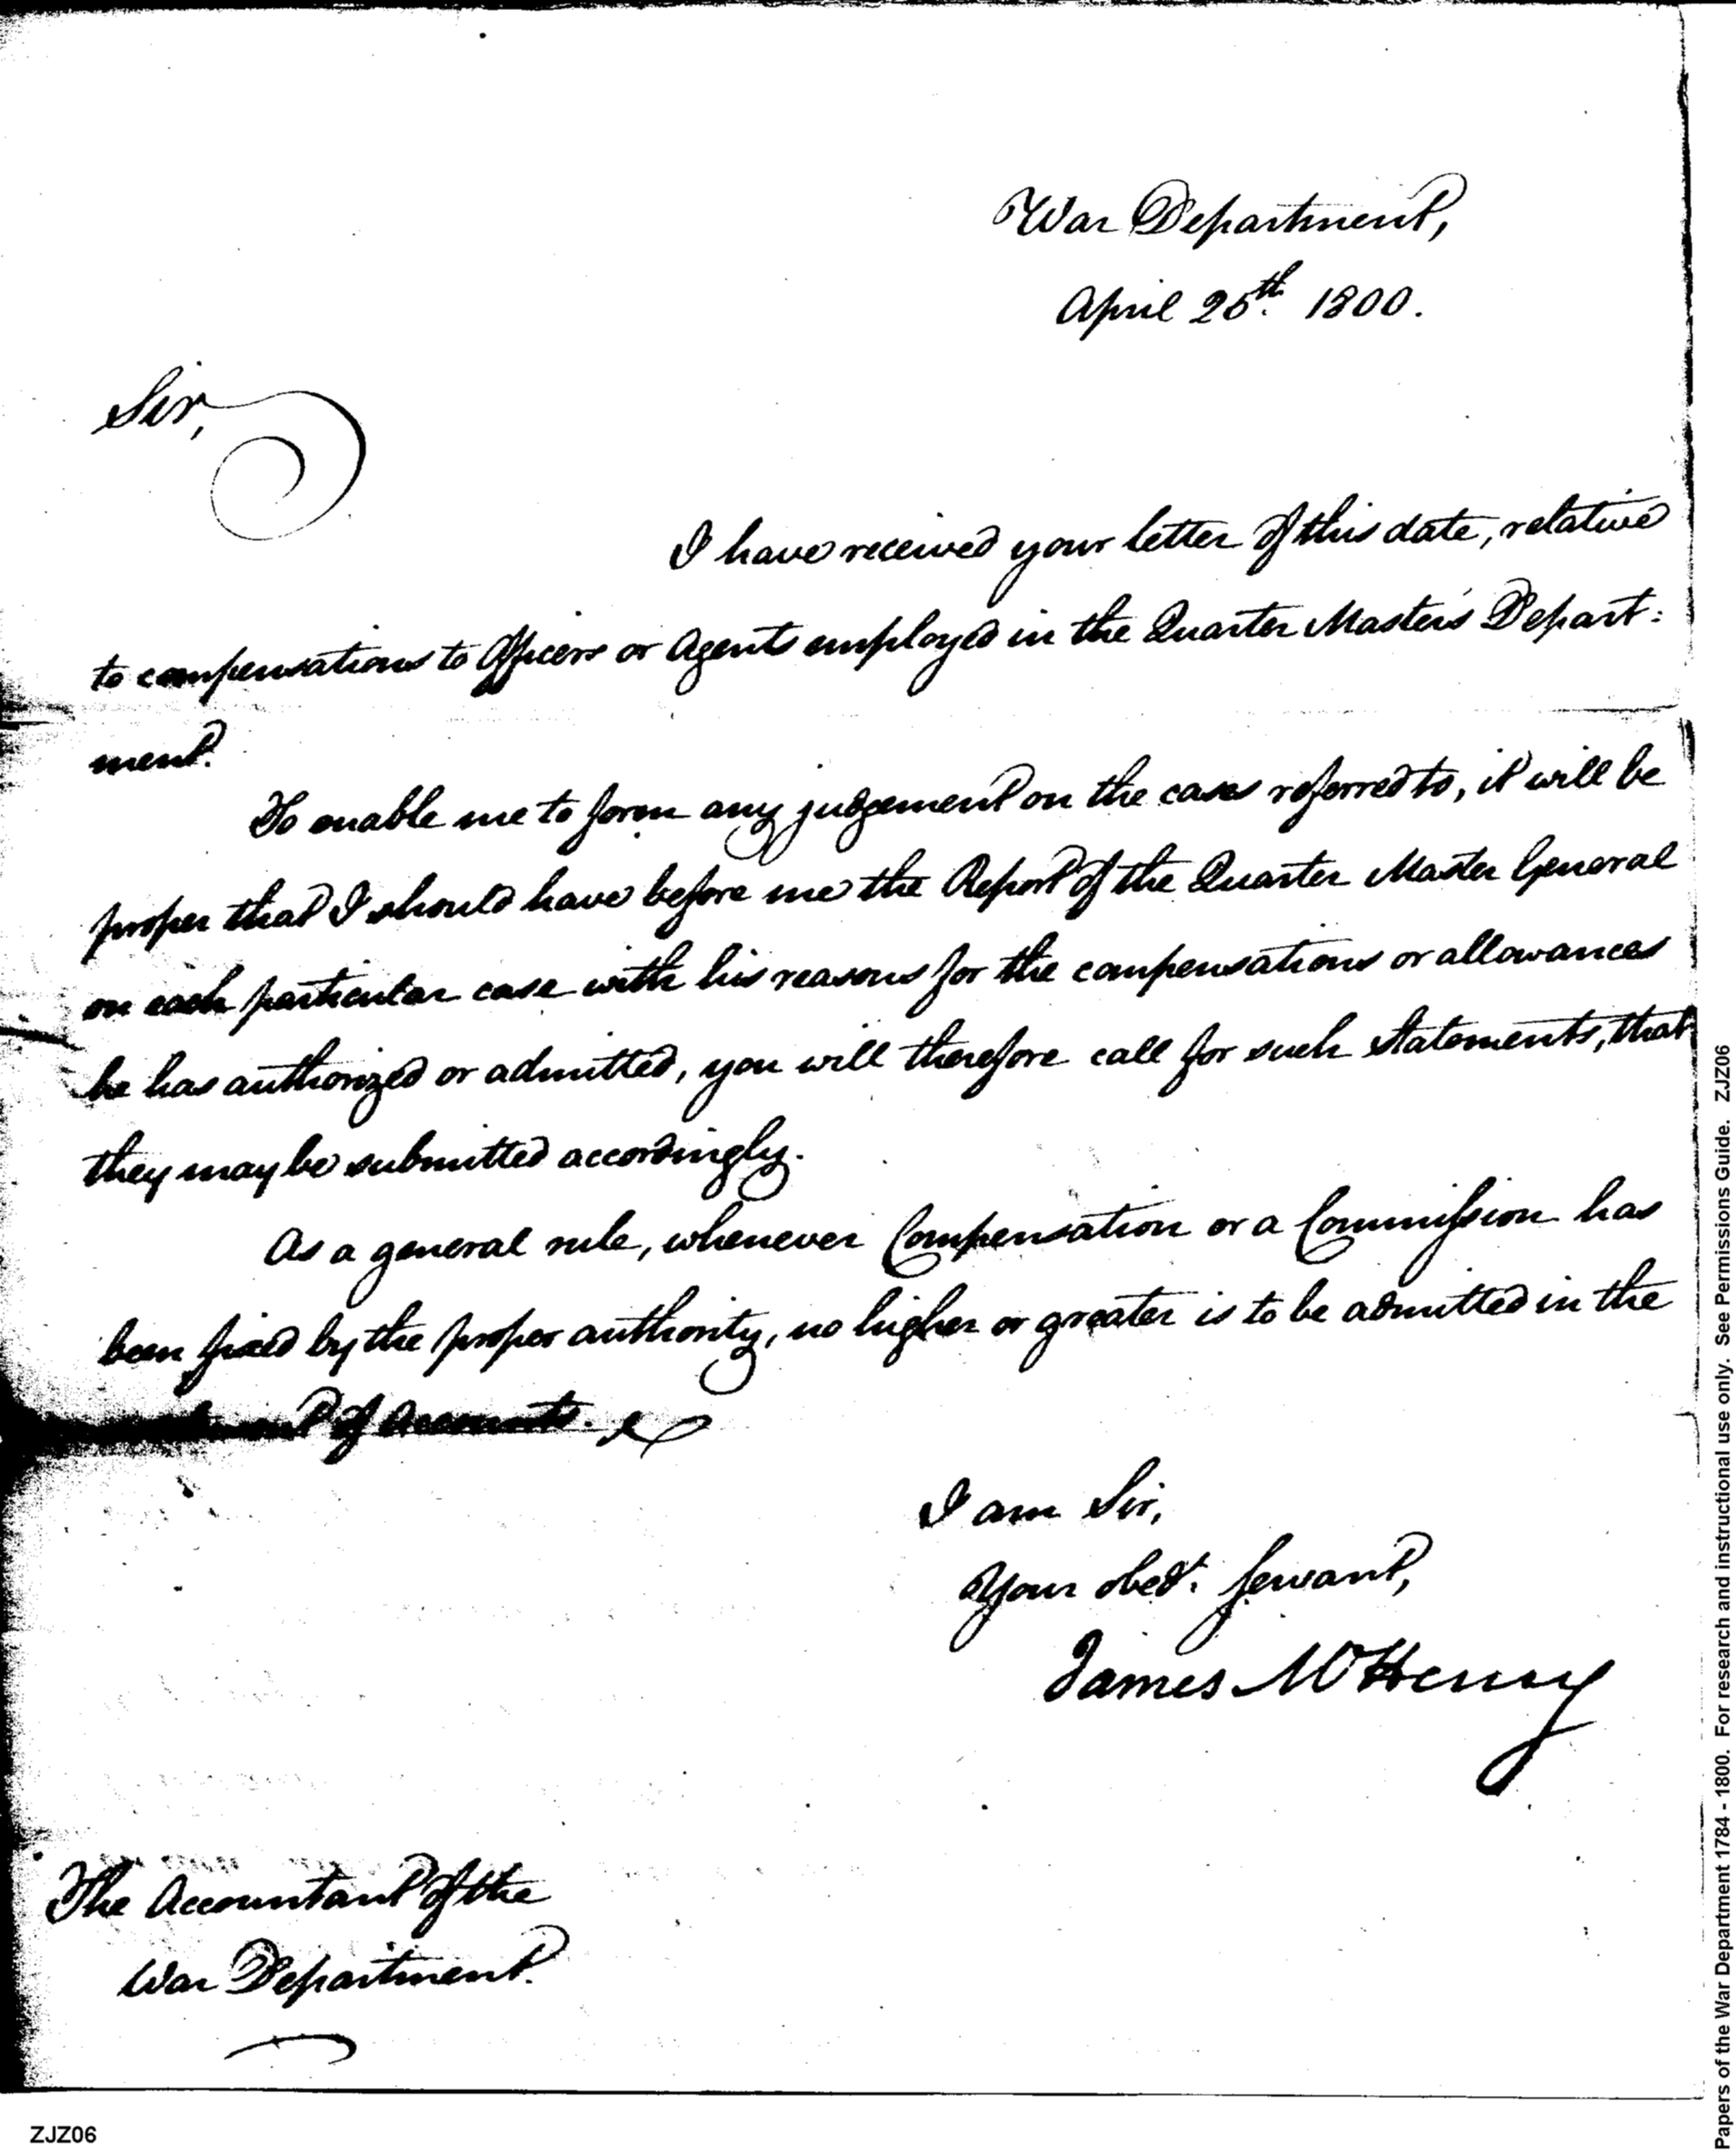 War Department,
April 25th. 1800.
Sir,
I have received your letter of this date, relative
to compensations to Officers or Agents employed in the Quarter Master's Depart:
ment.
To enable me to form any judgement on the cases referred to, it will be
proper that I should have before me the Report of the Quarter Master General
on each particular case with his reasons for the compensations or allowances
he has authorized or admitted, you will therefore call for such statements, that
they may be submitted accordingly.
As a general rule, whenever Compensation or a Commission has
been fixed by the proper authority, no higher or greater is to be admitted in the
of Accounts.
I am Sir,
Your obedt. servant,
James McHenry
The Accountant of the
War Department.
ZJZ06
Papers of the War Department 1784 - 1800. For research and instructional use only. See Permissions Guide. ZJZ06